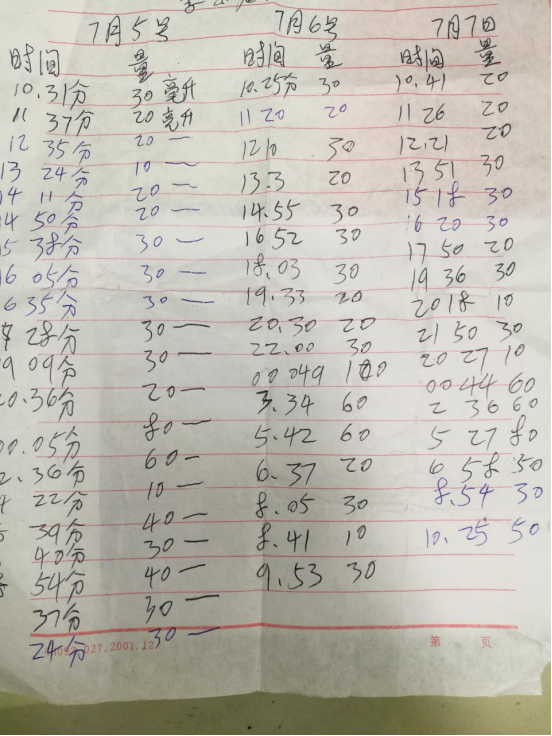 7月5号 7月6号 7月7日
时间 量 时间 量 时间 量
10.31分 30毫升 10.25分 30 10.41 20
11 37分 20毫升 11 20 20 11 26 20
12 35分 20一 1210 30 12.21 20
13 24分 10一 13.3 20 13 51 30
14 11分 20一 14.55 30 15 18 30
14 50分 20一 16.52 30 16 20 30
15 38分 30一 18.03 30 17 50 20
16 05分 30一 19.33 20 19 36 30
6 35分 30一 20.30 20 2018 10
28分 30一 22.00 30 21 50 30
19 09分 30一 00 049 20 27 10
20.36分 20一 3.34 60 0044 60
00.05分 80一 5.42 60 2 36 60
2.36分 60一 6.37 20 5 27 80
22分 10一 8.05 30 6 58 50
39分 40一 8.41 10 8.54 30
40分 30一 9.53 30 10.25 50
54分 40一
37分 30一
24分 30一
027.2001.12 第 页